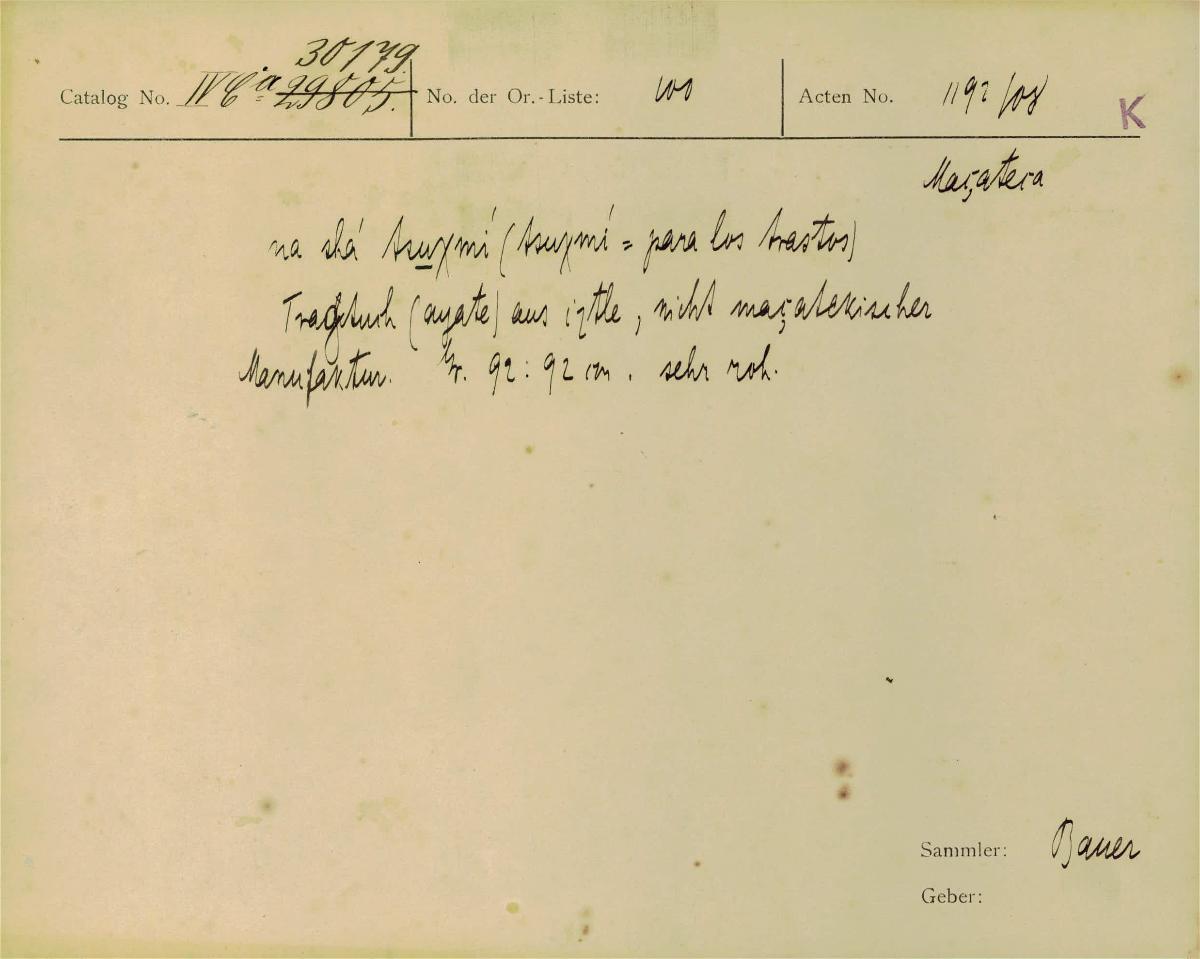 30179.
Catalog No. IV Ca 29805. No. der Or.-Liste: 100 Acten No. 1192/08
K
Maçateca
na shá tsuχmí (tsuχmí = para los trastos)
Tragtuch (ayate) aus iztle, nicht maçatekischer
Manufaktur. Gr. 92 : 92 cm. sehr roh.
Sammler: Bauer
Geber: